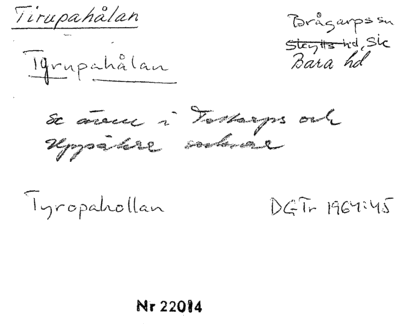 Tirupahålan
Brågarps sn
Skytts hd, Sk
Bara hd
Tyrupahålan
Se även i Tottarps och
Uppåkra socknar
Tyropahollan
DGTr 1964:45
Nr 22014